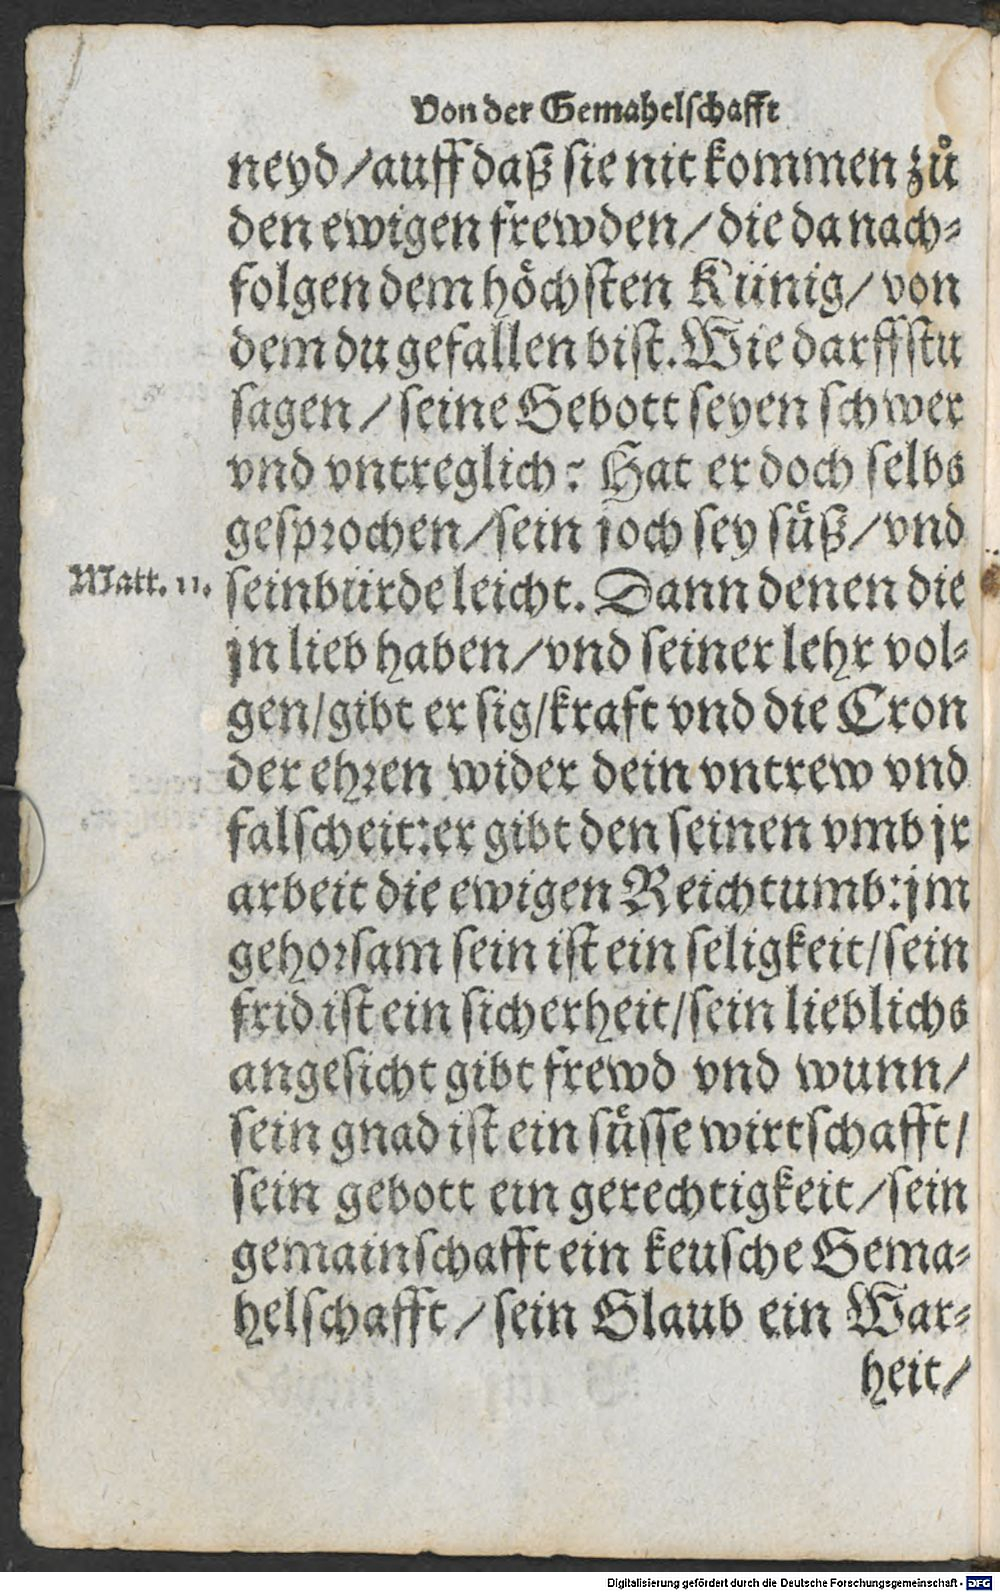 Von der Gemahelschafft
neyd/auff daß sie nit kommen zuͦ
den ewigen frewden/die da nach-
folgen dem hoͤchsten Künig/von
dem du gefallen bist. Wie darffstu
sagen/seine Gebott seyen schwer
vnd vntreglich? Hat er doch selbs
gesprochen/sein joch sey suͤß/vnd
Matt. 11. sein bürde leicht. Dann denen die
jn lieb haben/vnd seiner lehr vol-
gen/gibt er sig/kraft vnd die Cron
der ehren wider dein vntrew vnd
falscheit: er gibt den seinen vmb jr
arbeit die ewigen Reichtumb: jm
gehorsam sein ist ein seligkeit/sein
frid ist ein sicherheit/sein lieblichs
angesicht gibt frewd vnd wunn/
sein gnad ist ein suͤsse wirtschafft/
sein gebott ein gerechtigkeit/sein
gemainschafft ein keusche Gema-
helschafft/sein Glaub ein War-
heit/
Digitalisierung gefördert durch die Deutsche Forschungsgemeinschaft - DFG